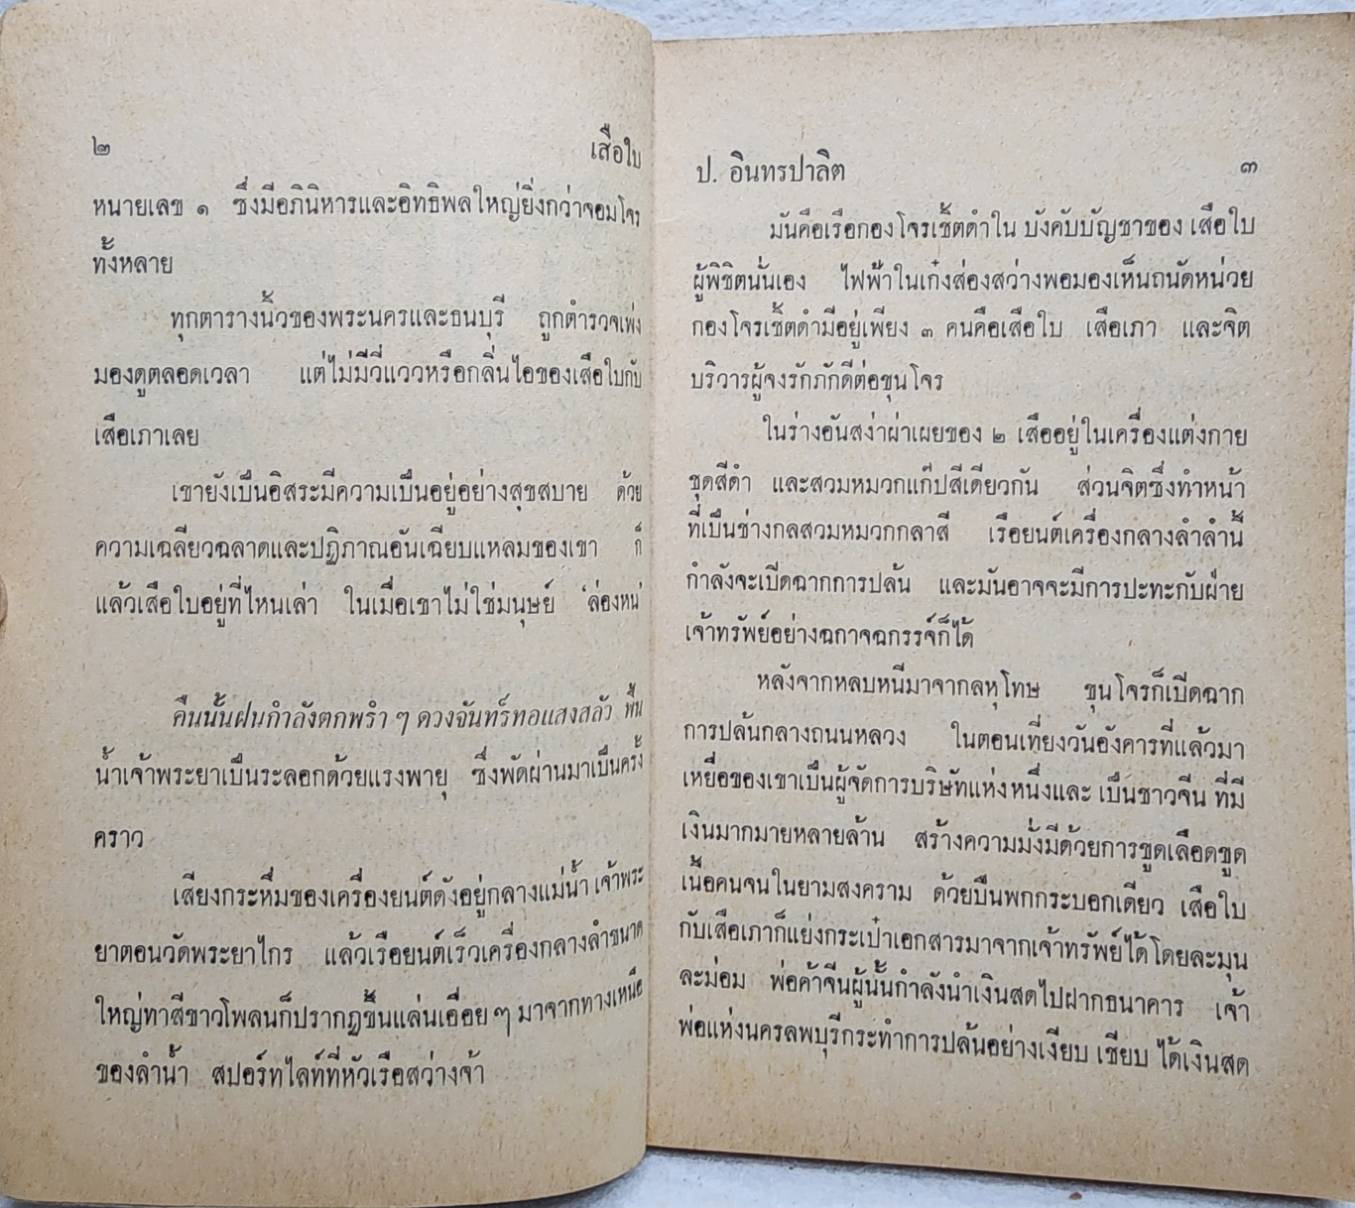 ๒ เสือใบ
หมายเลข ๑ ซึ่งมีอภินิหารและอิทธิพลใหญ่ยิ่งกว่าจอมโจร
ทั้งหลาย
ทุกตารางนิ้วของพระนครและธนบุรี ถูกตำรวจเพ่ง
มองดูตลอดเวลา แต่ไม่มีวี่แววหรือกลิ่นไอของเสือใบกับ
เสือเภาเลย
เขายังเป็นอิสระมีความเป็นอยู่อย่างสุขสบาย ด้วย
ความเฉลียวฉลาดและปฏิภาณอันเฉียบแหลมของเขา ก็
แล้วเสือใบอยู่ที่ไหนเล่า ในเมื่อเขาไม่ใช่มนุษย์ 'ล่องหน'
คืนนั้นฝนกำลังตกพรำ ๆ ดวงจันทร์ทอแสงสลัว พื้น
น้ำเจ้าพระยาเป็นระลอกด้วยแรงพายุ ซึ่งพัดผ่านมาเป็นครั้ง
คราว
เสียงกระหึ่มของเครื่องยนต์ดังอยู่กลางแม่น้ำ เจ้าพระ
ยาตอนวัดพระยาไกร แล้วเรือยนต์เร็วเครื่องกลางลำขนาด
ใหญ่ทาสีขาวโพลนก็ปรากฏขึ้นแล่นเอื่อย ๆ มาจากทางเหนือ
ของลำน้ำ สปอร์ทไลท์ที่หัวเรือสว่างจ้า
ป. อินทรปาลิต ๓
มันคือเรือกองโจรเชิ้ตดำใน บังคับบัญชาของ เสือใบ
ผู้พิชิตนั่นเอง ไฟฟ้าในเก๋งส่องสว่างพอมองเห็นถนัดหน่วย
กองโจรเชิ้ตดำมีอยู่เพียง ๓ คนคือเสือใบ เสือเภา และจิต
บริวารผู้จงรักภักดีต่อขุนโจร
ในร่างอันสง่าผ่าเผยของ ๒ เสืออยู่ในเครื่องแต่งกาย
ชุดสีดำ และสวมหมวกแก๊ปสีเดียวกัน ส่วนจิตซึ่งทำหน้า
ที่เป็นช่างกลสวมหมวกกลาสี เรือยนต์เครื่องกลางลำลำนี้
กำลังจะเปิดฉากการปล้น และมันอาจจะมีการปะทะกับฝ่าย
เจ้าทรัพย์อย่างฉกาจฉกรรจ์ก็ได้
หลังจากหลบหนีมาจากลหุโทษ ขุนโจรก็เปิดฉาก
การปล้นกลางถนนหลวง ในตอนเที่ยงวันอังคารที่แล้วมา
เหยื่อของเขาเป็นผู้จัดการบริษัทแห่งหนึ่งและ เป็นชาวจีน ที่มี
เงินมากมายหลายล้าน สร้างความมั่งมีด้วยการขูดเลือดขูด
เนื้อคนจนในยามสงคราม ด้วยปืนพกกระบอกเดียว เสือใบ
กับเสือเภาก็แย่งกระเป๋าเอกสารมาจากเจ้าทรัพย์ได้โดยละมุน
ละม่อม พ่อค้าจีนผู้นั้นกำลังนำเงินสดไปฝากธนาคาร เจ้า
พ่อแห่งนครลพบุรีกระทำการปล้นอย่างเงียบ เชียบ ได้เงินสด